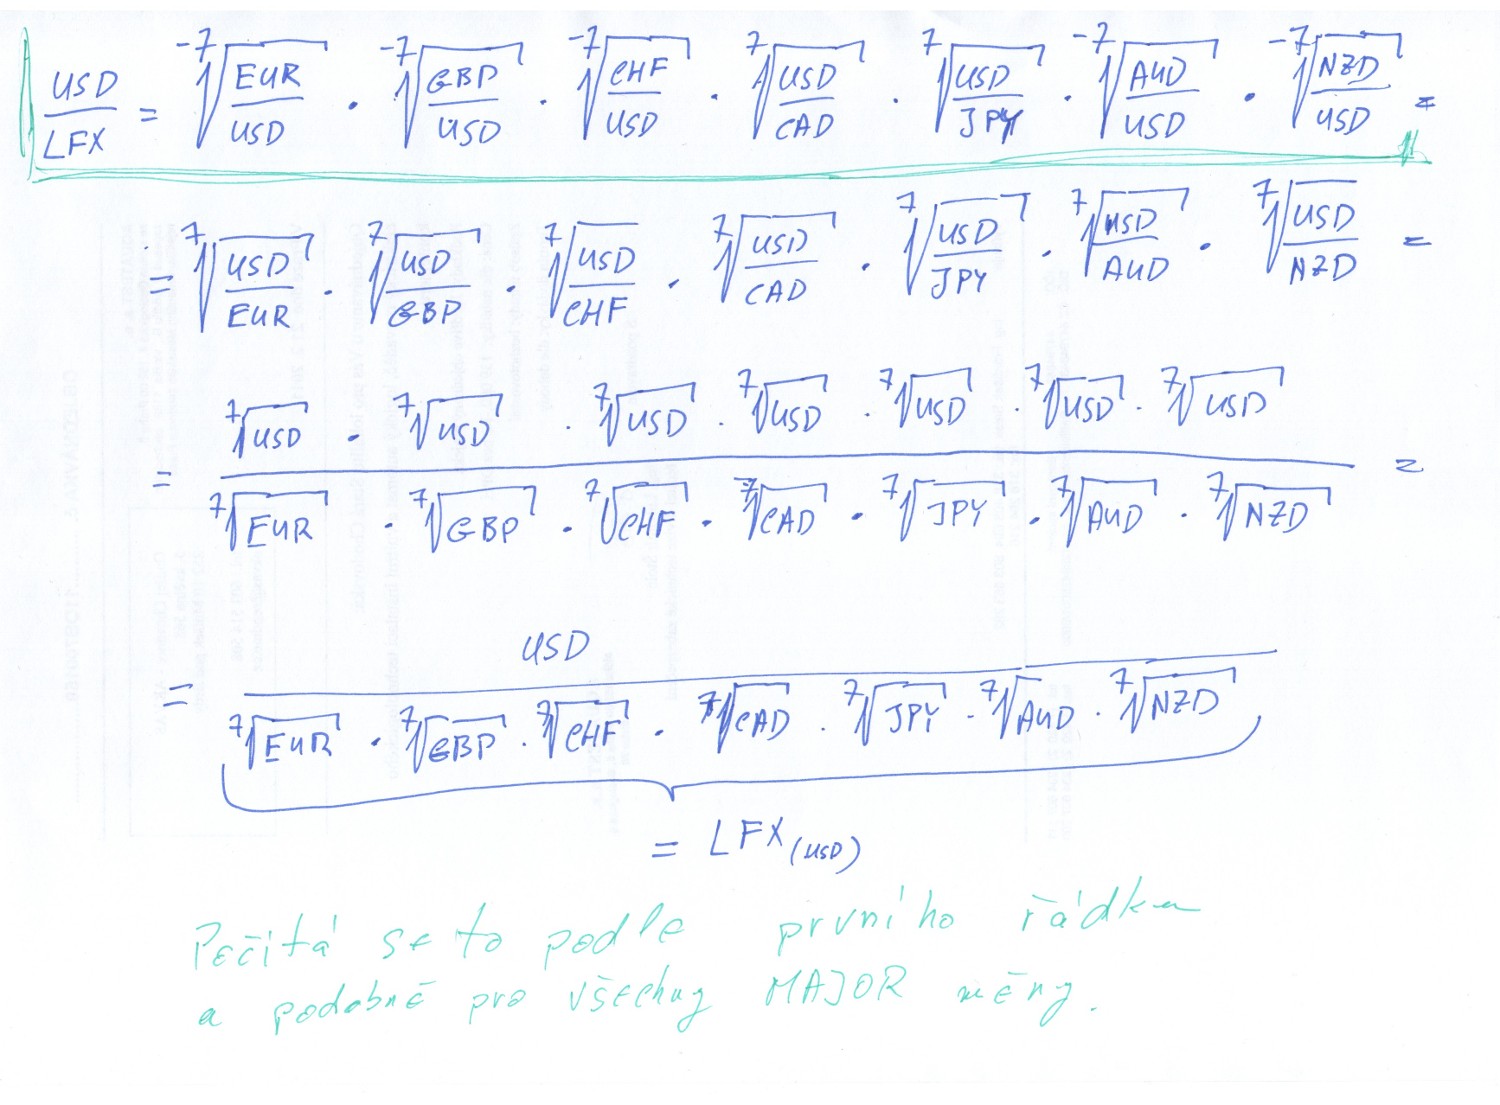 USD/LFX = ⁻⁷√(EUR/USD) · ⁻⁷√(GBP/USD) · ⁻⁷√(CHF/USD) · ⁷√(USD/CAD) · ⁷√(USD/JPY) · ⁻⁷√(AUD/USD) · ⁻⁷√(NZD/USD) =
= ⁷√(USD/EUR) · ⁷√(USD/GBP) · ⁷√(USD/CHF) · ⁷√(USD/CAD) · ⁷√(USD/JPY) · ⁷√(USD/AUD) · ⁷√(USD/NZD) =
⁷√USD · ⁷√USD · ⁷√USD · ⁷√USD · ⁷√USD · ⁷√USD · ⁷√USD
= =
⁷√EUR · ⁷√GBP · ⁷√CHF · ⁷√CAD · ⁷√JPY · ⁷√AUD · ⁷√NZD
USD
=
⁷√EUR · ⁷√GBP · ⁷√CHF · ⁷√CAD · ⁷√JPY · ⁷√AUD · ⁷√NZD
= LFX(USD)
Počítá se to podle prvního řádku
a podobně pro všechny MAJOR měny.